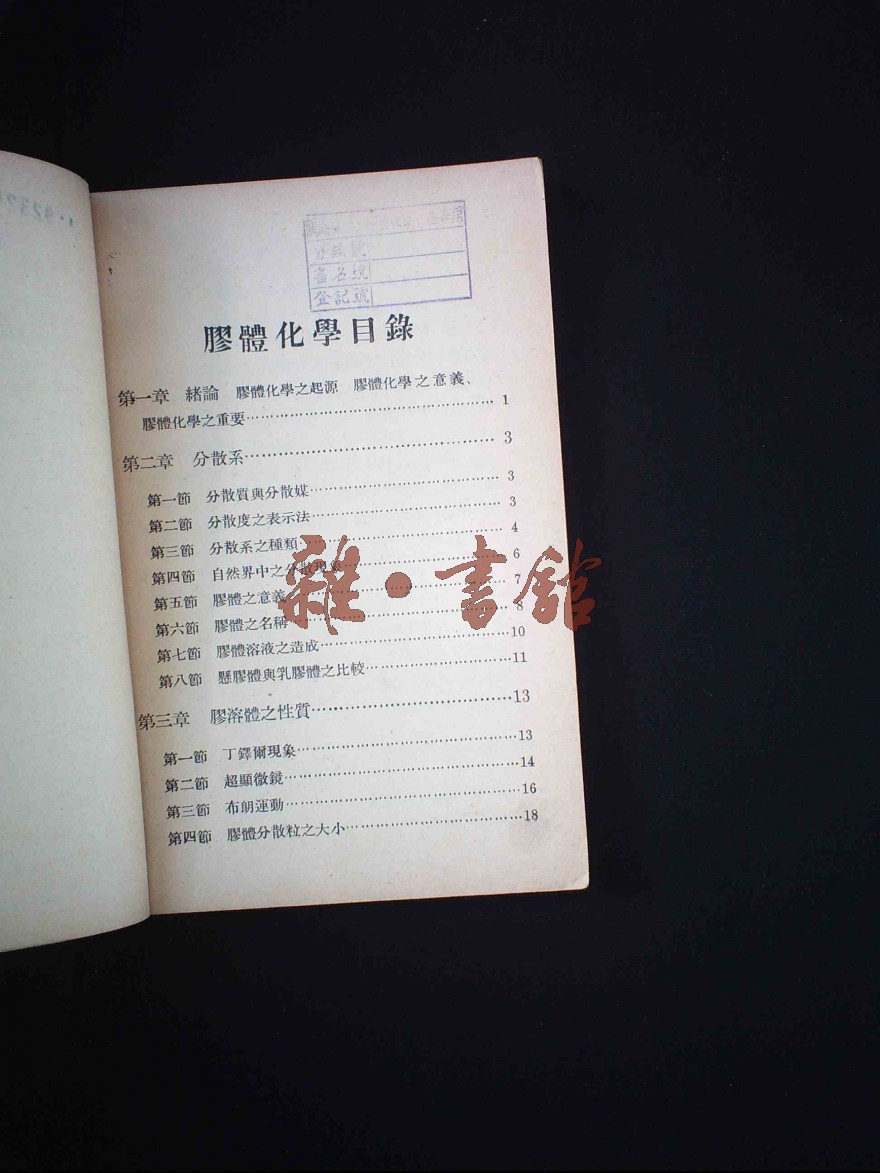 分類號
書名號
登記號
膠體化學目錄
第一章 緒論 膠體化學之起源 膠體化學之意義、
膠體化學之重要 1
第二章 分散系 3
第一節 分散質與分散媒 3
第二節 分散度之表示法 3
第三節 分散系之種類 4
第四節 自然界中之分散現象 6
第五節 膠體之意義 7
第六節 膠體之名稱 8
第七節 膠體溶液之造成 10
第八節 懸膠體與乳膠體之比較 11
第三章 膠溶體之性質 13
第一節 丁鐸爾現象 13
第二節 超顯微鏡 14
第三節 布朗運動 16
第四節 膠體分散粒之大小 18
雜·書館